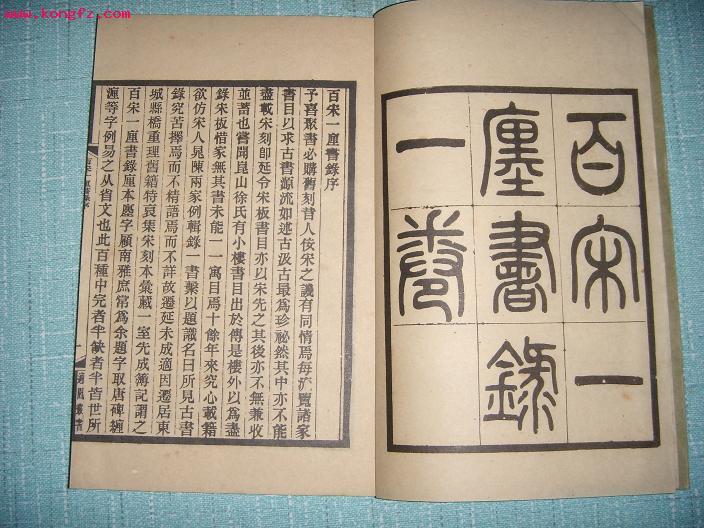 www.kongfz.com
百宋一
廛書錄
一卷
百宋一廛書錄序
予喜聚書必購舊刻昔人佞宋之譏有同情焉每流覽諸家
書目以求古書源流如述古汲古最爲珍祕然其中亦不能
盡載宋刻卽延令宋板書目亦以宋先之其後亦不無兼收
並蓄也嘗聞崑山徐氏有小樓書目出於傳是樓外以爲盡
錄宋板惜家無其書未能一一寓目焉十餘年來究心載籍
欲仿宋人晁陳兩家例輯錄一書繫以題識名曰所見古書
錄究苦擇焉而不精語焉而不詳故遷延未成適因遷居東
城縣橋重理舊籍特裒集宋刻本彙藏一室先成簿記謂之
百宋一廛書錄廛本字顧南雅庶常爲余題字取唐碑纏
瀍等字例易之从省文也此百種中完者半缺者半皆世所
百宋一廛書錄序
一
適園叢書